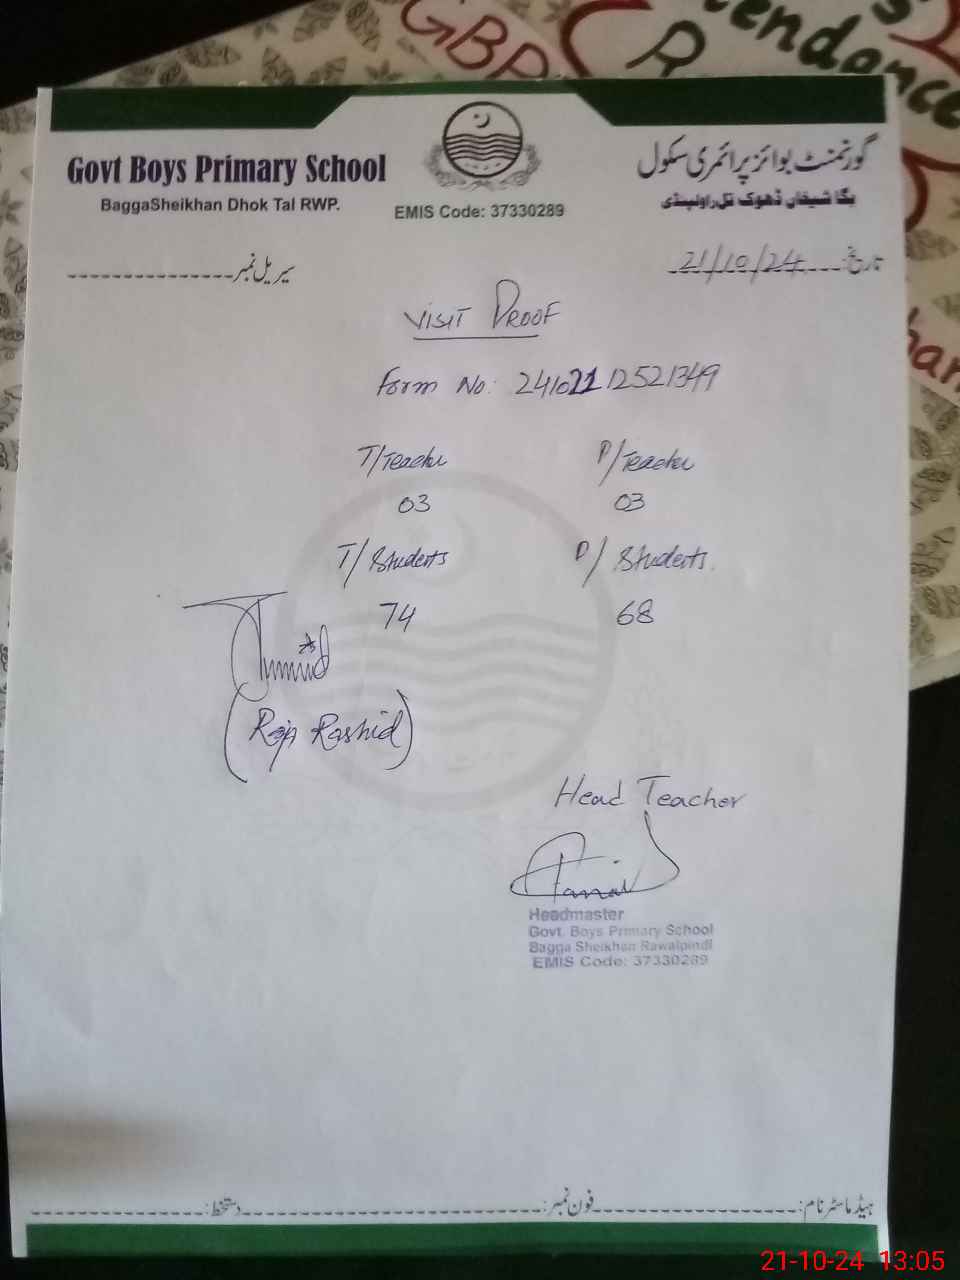 GBP
endance
R
han
Govt Boys Primary School
گورنمنٹ بوائز پرائمری سکول
BaggaSheikhan Dhok Tal RWP.
بگا شیخاں ڈھوک تل راولپنڈی
EMIS Code: 37330289
سیریل نمبر
تاریخ: 21/10/24
VISIT PROOF
Form No: 24102112521349
T/Teacher P/Teacher
03 03
T/Students P/Students.
74 68
(Raja Rashid)
Head Teacher
Headmaster
Govt. Boys Primary School
Bagga Sheikhan Rawalpindi
EMIS Code: 37330289
ہیڈ ماسٹر نام: فون نمبر: دستخط:
21-10-24 13:05